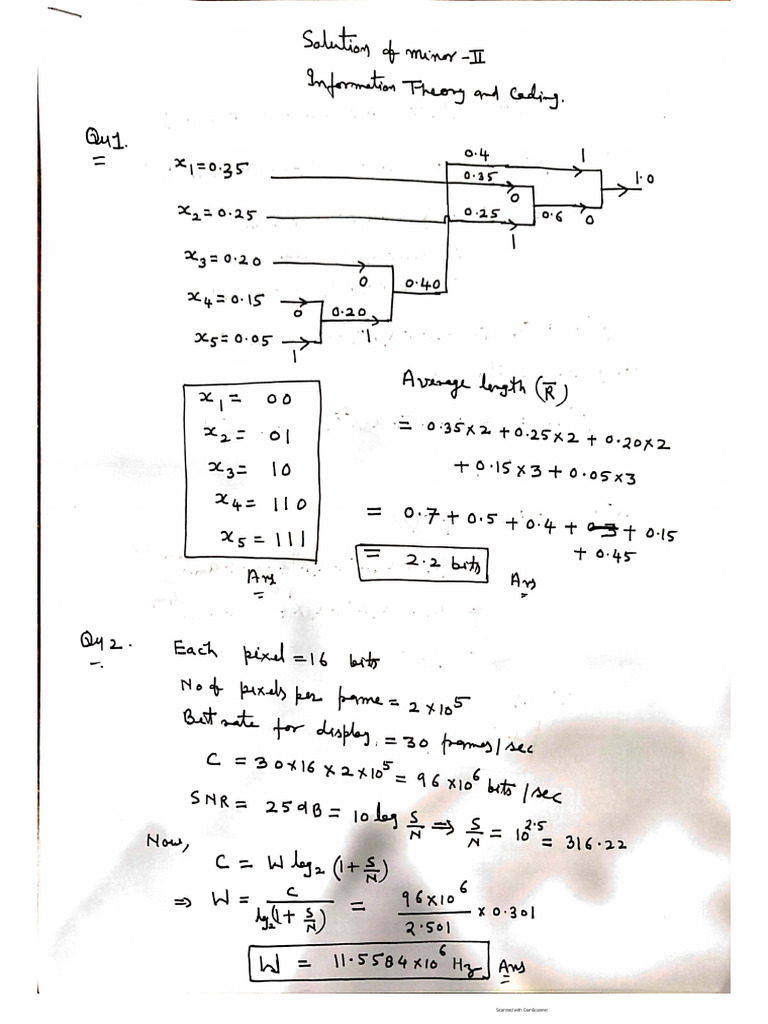 Solution of minor-II
Information Theory and Coding.
Qu1.
x1=0.35
x2=0.25
x3=0.20
x4=0.15
x5=0.05
0
1
0.20
0
1
0.40
0.4
0.35
0.25
0
1
0.6
1
0
1.0
x1= 00
x2= 01
x3= 10
x4= 110
x5= 111
Ans
Average length (R̅)
= 0.35x2 + 0.25x2 + 0.20x2
+ 0.15x3 + 0.05x3
= 0.7 + 0.5 + 0.4 + + 0.15
+ 0.45
= 2.2 bits
Ans
Qu2.
Each pixel = 16 bits
No of pixels per frame = 2x10^5
Bit rate for display = 30 frames/sec
C = 30x16x2x10^5 = 96x10^6 bits/sec
SNR = 25dB = 10 log S/N ⇒ S/N = 10^2.5 = 316.22
Now,
C = W log2 (1+S/N)
⇒ W = C / log2(1+S/N) = 96x10^6 / 2.501 x 0.301
W = 11.5584x10^6 Hz
Ans
Scanned with CamScanner